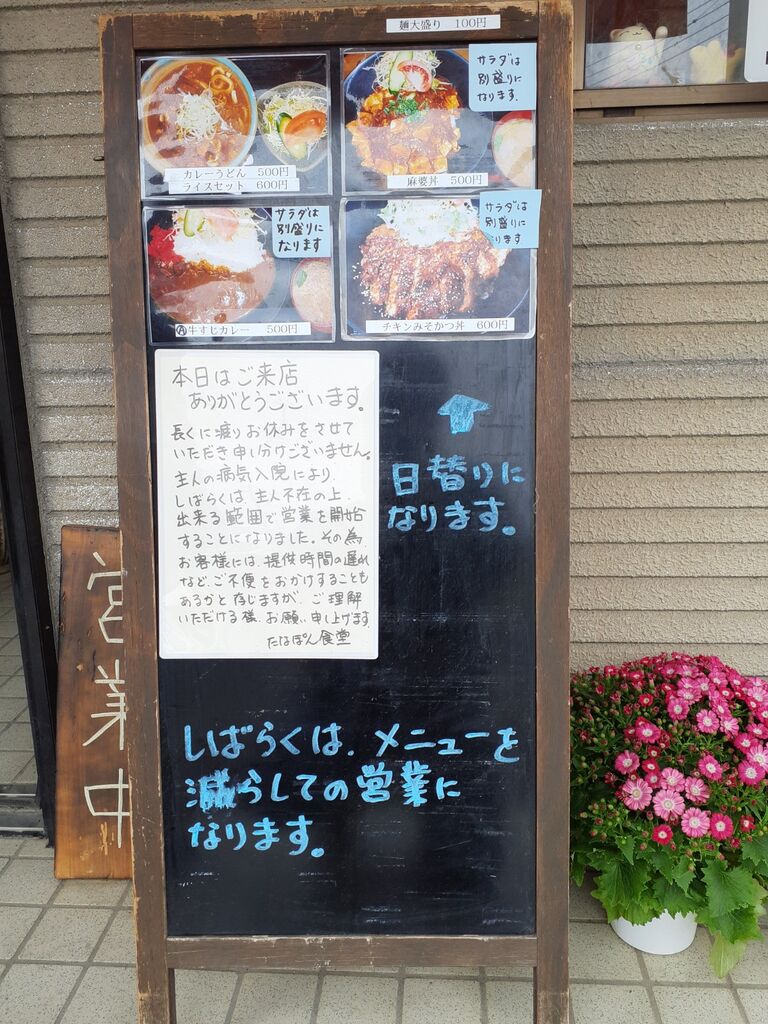 麺大盛り 100円
サラダは
別盛りに
なります.
カレーうどん 500円
ライスセット 600円
麻婆丼 500円
サラダは
別盛りに
なります
サラダは
別盛りに
なります
牛すじカレー 500円
チキンみそかつ丼 600円
本日はご来店
ありがとうございます。
長くに渡りお休みをさせて
いただき申し分けございません。
主人の病気入院により
しばらくは、主人不在の上、
出来る範囲で営業を開始
することになりました。その為
お客様には、提供時間の遅れ
など、ご不便をおかけすることも
あるかと存じますが、ご理解
いただける様、お願い申し上げます
たなぽん食堂
日替りに
なります。
しばらくは、メニューを
減らしての営業に
なります。
営業中